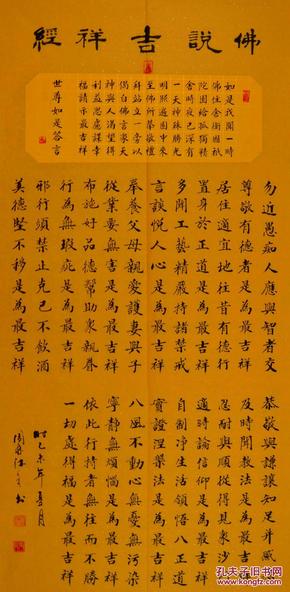 佛說吉祥經
如是我聞一時
佛住舍衛國祇
陀園給孤獨精
舍時夜已深有
一天神殊勝光
明照遍園中來
至佛所恭敬禮
拜站立一旁以
偈白佛言眾天
神與人渴望得
利益思慮諸幸
福請示最吉祥
世尊如是答言
勿近愚痴人應與智者交
尊敬有德者是為最吉祥
居住適宜地往昔有德行
置身於正道是為最吉祥
多聞工藝精嚴持諸禁戒
言談悅人心是為最吉祥
奉養父母親愛護妻與子
從業要無害是為最吉祥
布施好品德幫助眾親眷
行為無瑕疵是為最吉祥
邪行須禁止克己不飲酒
美德堅不移是為最吉祥
恭敬與謙讓知足并感恩
及時聞教法是為最吉祥
忍耐與順從得見眾沙門
適時論信仰是為最吉祥
自制淨生活領悟八正道
實證涅槃法是為最吉祥
八風不動心無憂無污染
寧靜無煩惱是為最吉祥
依此行持者無往而不勝
一切處得福是為最吉祥
時乙未年夏月